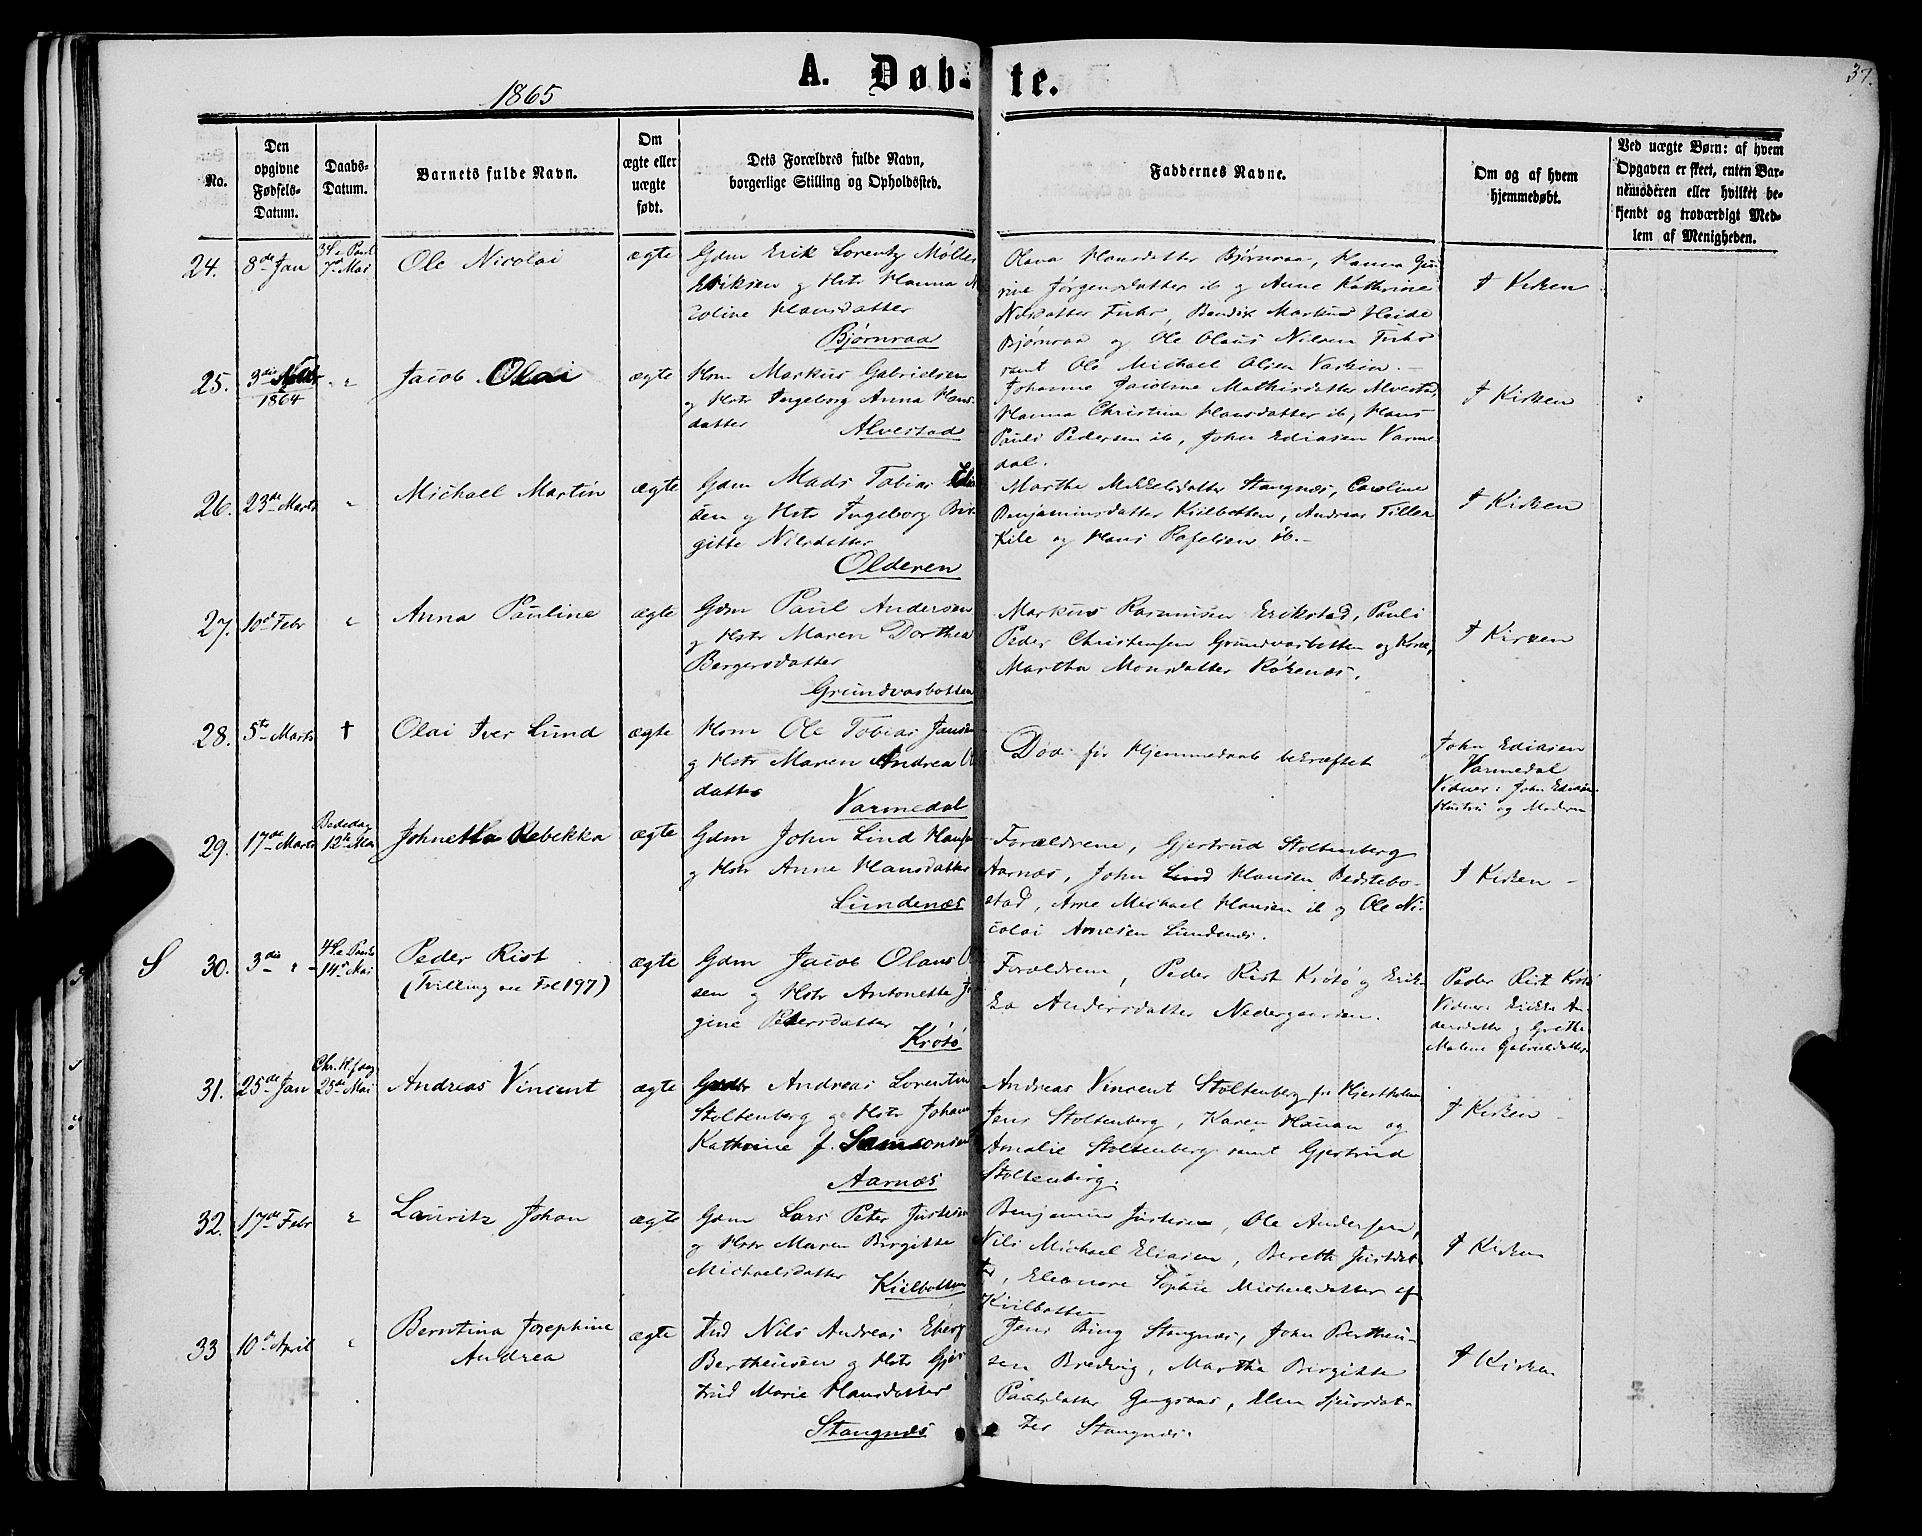 37.
A. Døbte.
1865
No.
Den opgivne Fødsels-Datum.
Daabs-Datum.
Barnets fulde Navn.
Om ægte eller uægte født.
Dets Forældres fulde Navn, borgerlige Stilling og Opholdssted.
Faddernes Navne.
Om og af hvem hjemmedøbt.
Ved uægte Børn: af hvem Opgaven er skeet, enten Bar-
nemoderen eller hvilket be-
kjendt og troværdigt Med-
lem af Menigheden.
24. 8de Jan
7de Mai
Ole Nicolai
ægte
Gdm Erik Lorentz Møller
Eriksen og Hstr Hanna N
coline Hansdatter
Bjørnraa
Olava Hansdatter Bjørnraa, Hanna Gu-
rine Jørgensdatter ib og Anne Kathrine
Nilsdatter Fuhr, Bendix Markus Heide
Bjørnraa og Ole Olaus Nilsen Fuhr
samt Ole Michael Olsen
I Kirken
25. 3die
1864
Jacob Olai
ægte
Hsm Markus Gabrielsen
og Hstr Ingeborg Anna Hans-
datter
Alvestad
Johanne Jacobine Mathisdatter Alvestad,
Hanna Christine Hansdatter ib, Hans
Pauli Pedersen ib, John Ediasen Varme
dal.
I Kirken
26. 23de Marts
Michael Martin
ægte
Gdm Mads Tobias
sen og Hstr Ingeborg Bir-
gitte Nilsdatter
Olderen
Marthe Mikkelsdatter Stangnes, Caroline
Benjaminsdatter Kiilbotten, Andreas
Kile og Hans ib.-
I Kirken
27. 10de Febr
Anna Pauline
ægte
Gdm Paul Andersen
og Hstr Maren Dorthea
Bergersdatter
Grundvasbotten
Markus Rasmussen Erikstad, Pauli
Peder Christensen Grundvasbotten og
Martha Monsdatter Røkenæs.
I Kirken
28. 5te Marts
†
Olai Iver Lund
ægte
Hsm Ole Tobias Jansen
og Hstr Maren Andrea
datter
Varmedal
Død før Hjemmedaab bekræftet
John Ediasen
Varmedal
Vidner: John Ediasen
Hustru og Moderen
29. 17de Marts
Bededag
12te Mai
Johnetta Rebekka
ægte
Gdm John Lind Hansen
og Hstr Anne Hansdatter
Lundenæs
Forældrene, Gjertrud Stoltenberg
Aarnæs, John Lind Hansen Bedstebo-
stad, Arne Michael Hansen ib og Ole Ni-
colai Arnesen Lundenæs.
I Kirken -
S 30. 3die "
14de Mai
Peder Rist
(Tvilling se Fol 197)
ægte
Gdm Jacob Olaus
sen og Hstr Antonette
gine Pedersdatter
Krøtø
Forældrene, Peder Rist Krøtø og Erik-
ka Andersdatter Nedergaarden.
Peder Rist Krøtø
Vidner: Erikka An-
dersdatter og Grethe
Malene Gabrielsdatter
31. 25de Jan
Chr. H.f.dag
25de Mai
Andreas Vincent
ægte
Andreas Lorentsen
Stoltenberg og Hstr Johanne
Kathrine f. Samsonsen
Aarnæs
Andreas Vincent Stoltenberg fra Hjertholmen
Jens Stoltenberg, Karen Hanan og
Amalie Stoltenberg samt Gjertrud
Stoltenberg.
I Kirken -
32. 17de Febr
Lauritz Johan
ægte
Gdm Lars Peter Justesen
og Hstr Maren Birgitte
Michaelsdatter
Kiilbotten
Benjamin Justesen, Ole Andersen,
Nils Michael Eliasen, Bereth Justdat-
ter, Eleonore Sophie Michaelsdatter af
Kiilbotten
I Kirken
33 10de April
Berntina Josephine
Andrea
ægte
Ind Nils Andreas Eberg
Bertheusen og Hstr Gjer-
trud Marie Hansdatter
Stangnæs
Jens Bing Stangnæs, John Bertheu-
sen Bredvig, Marthe Birgitte
Paulsdatter Gangsaas, Elen Sjursdat-
ter Stangnæs.
I Kirken